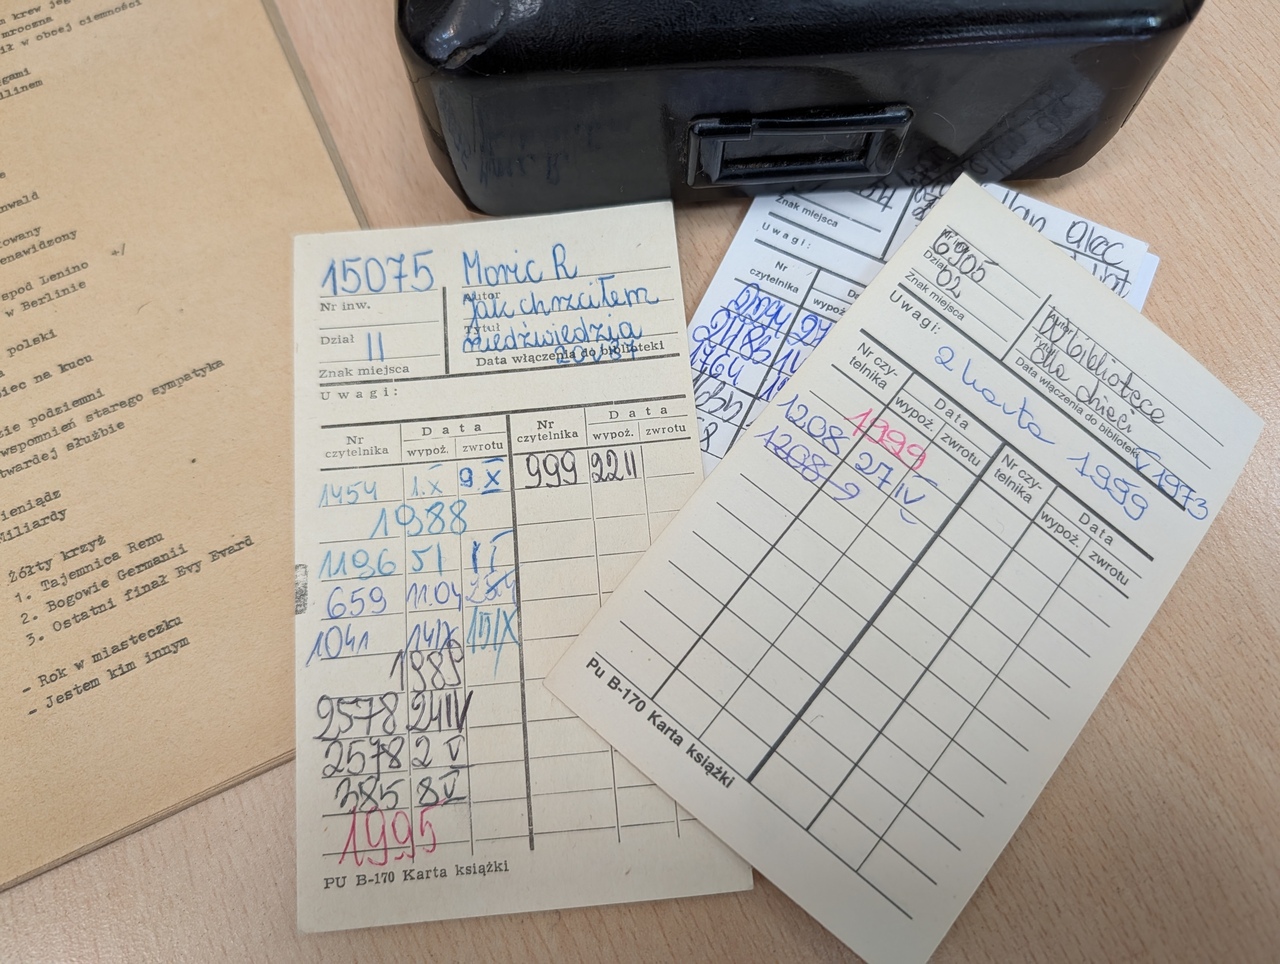 krew jeg
mroczna
ił w obcej ciemności
gami
llinem
e
nwald
owany
enawidzony
spod Lenino +/
w Berlinie
polski
iec na kucu
zie podziemni
wspomnień starego sympatyka
twardej służbie
ieniądz
Miliardy
Żółty krzyż
1. Tajemnica Renu
2. Bogowie Germanii
3. Ostatni finał Evy Evard
- Rok w miasteczku
- Jestem kim innym
15075 Moric R
Nr inw. Autor
Jak chrzciłem
Tytuł
Dział II niedźwiedzia
Data włączenia do biblioteki
Znak miejsca
Uwagi:
Nr czytelnika Data wypoż. zwrotu Nr czytelnika Data wypoż. zwrotu
1454 1.X 9.X 999 22 II
1988
1196 5 I
659 11.04
1041 14/X 15/IX
1989
2578 24 IV
2578 2 V
385 8 V
1995
PU B-170 Karta książki
Znak miejsca
Uwagi:
Nr czytelnika
wypoż.
2178
1764
6905
Dział 02
Znak miejsca
Autor
W bibliotece
Tytuł
dla dzieci
Data włączenia do biblioteki V 1973
Uwagi:
2 karta 1999
Nr czytelnika Data wypoż. zwrotu Nr czytelnika Data wypoż. zwrotu
1999
1208 27 IV
1208
PU B-170 Karta książki